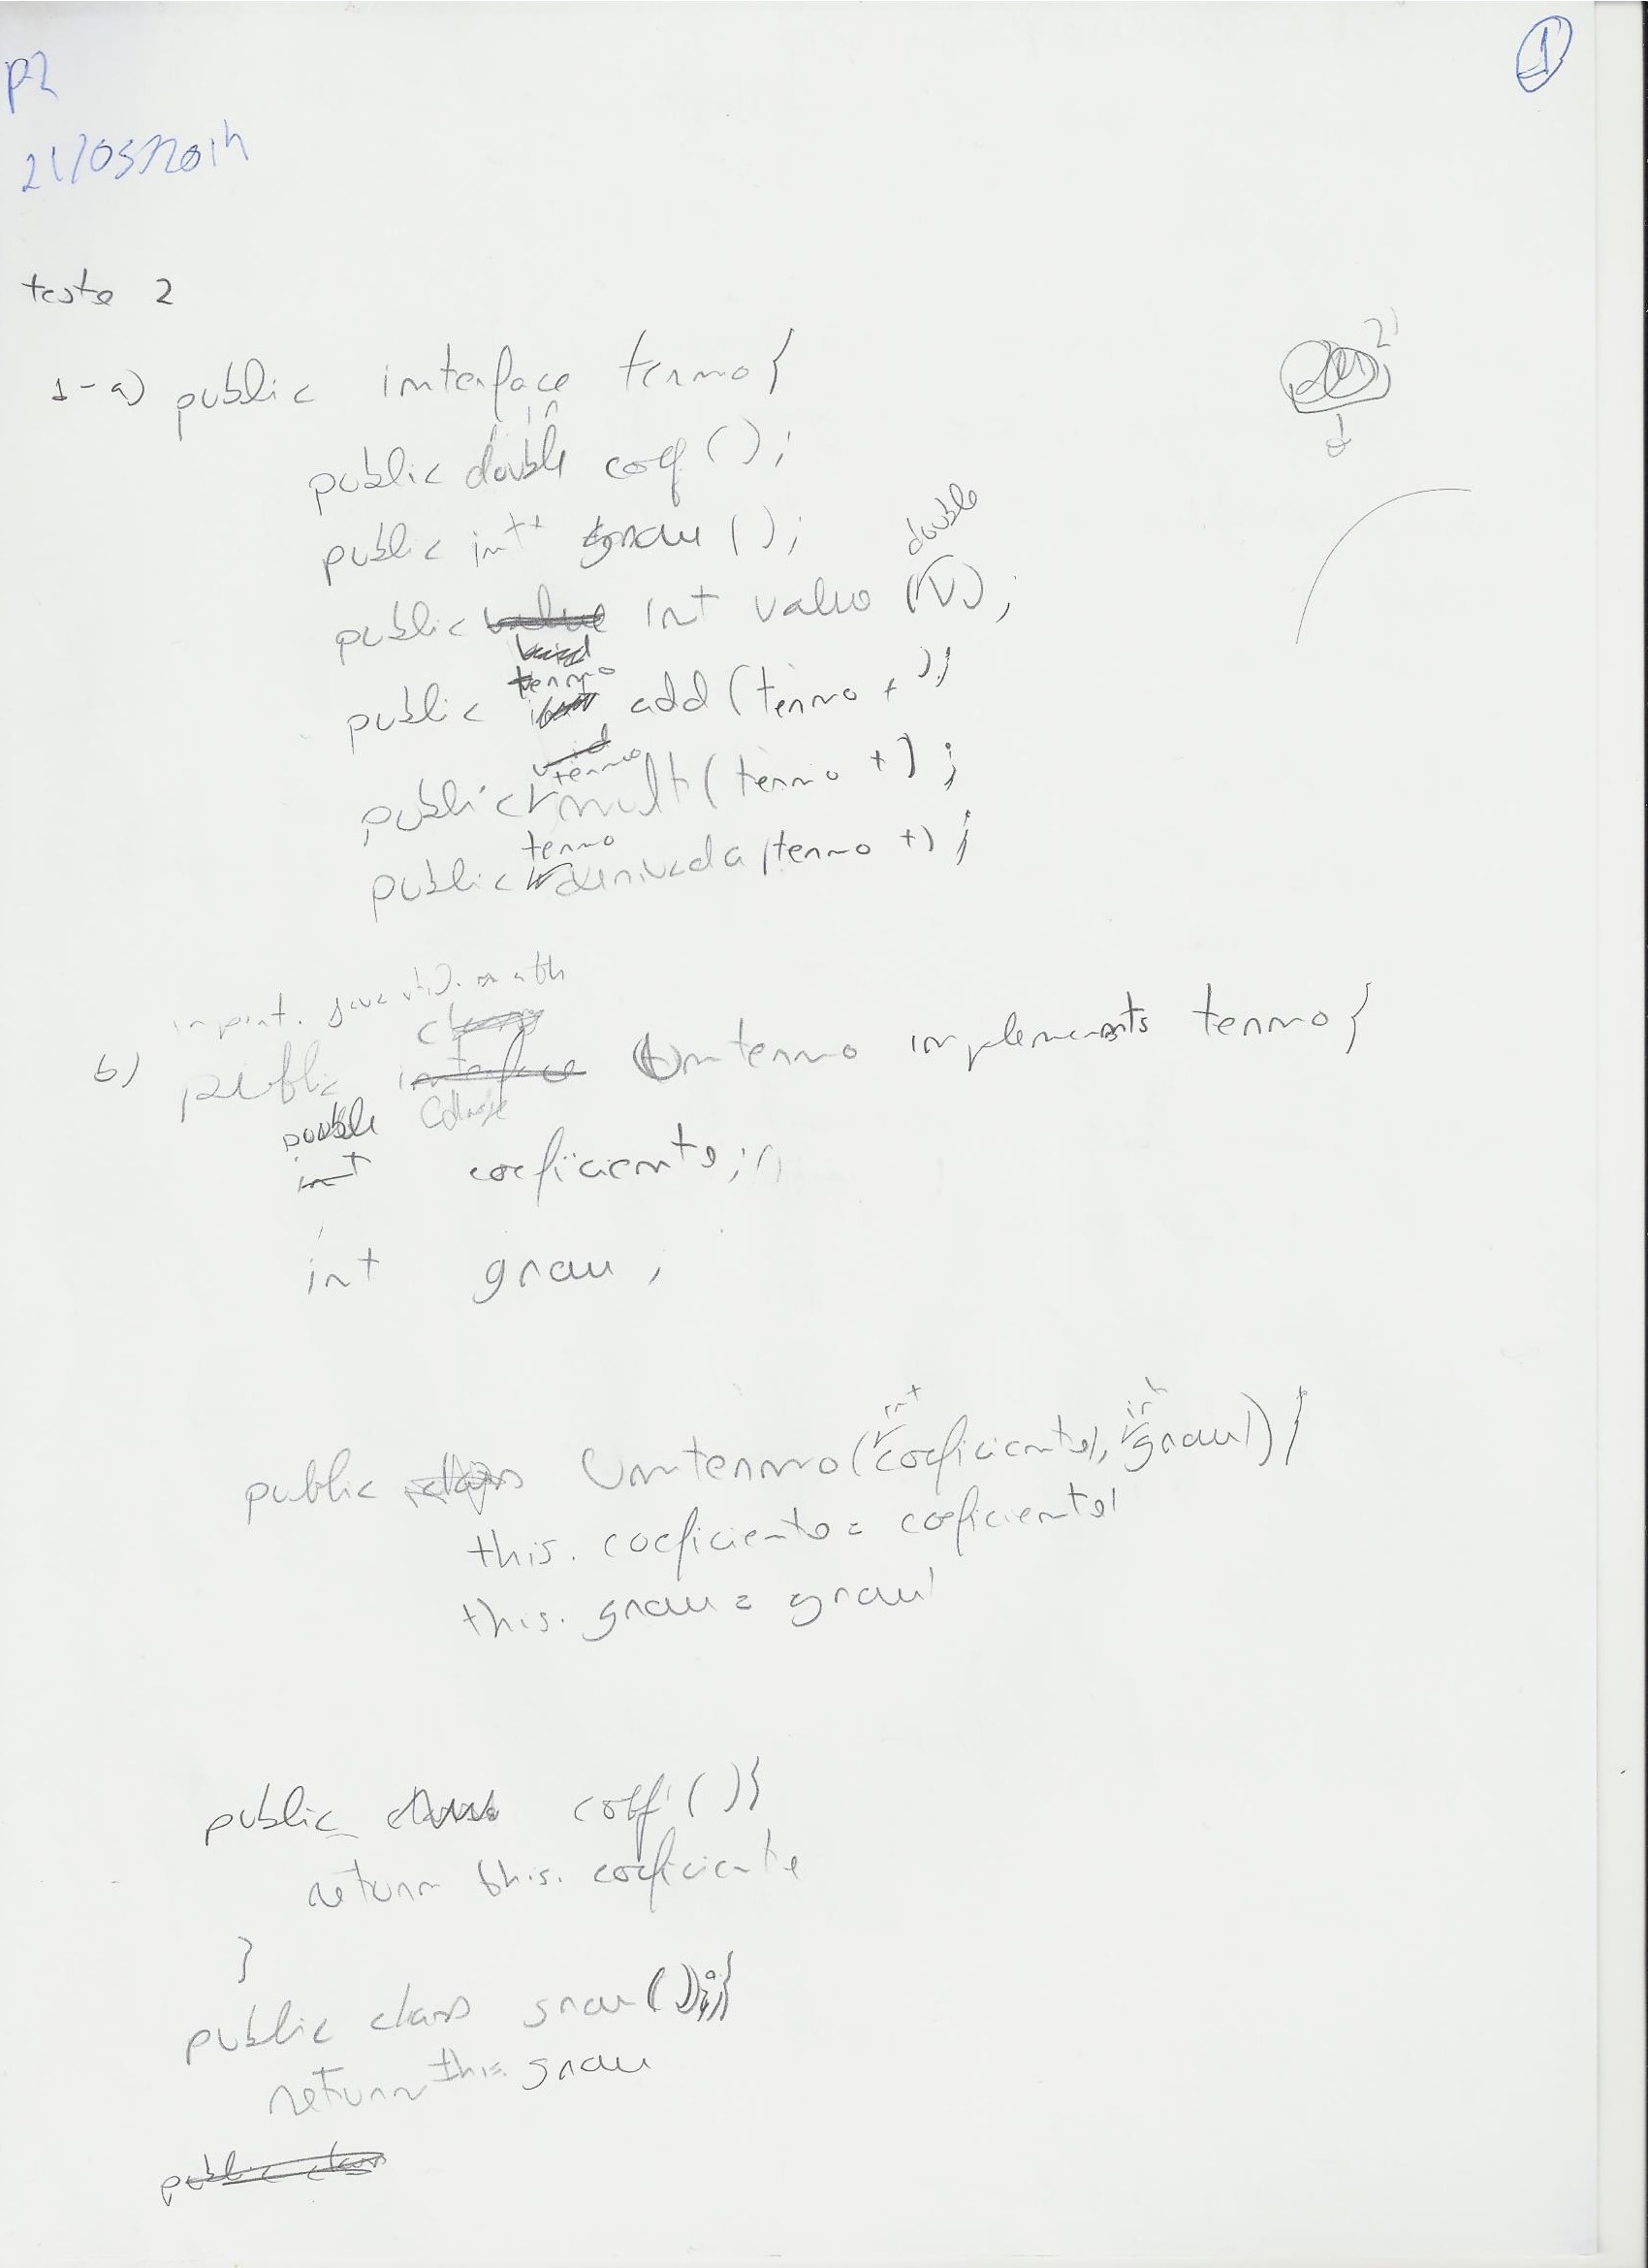 P2
1
21/05/2014
teste 2
1-a) public interface termo{
public double coef();
public int grau();
public int valuo (double V);
public termo add(termo t);
public termo mult(termo t);
public termo derivada(termo t);
import. java util. math
b) public Umtermo implements termo{
double coeficiente;
int grau;
public Umtermo(int coeficiente1, int grau1){
this. coeficiente = coeficiente1
this. grau = grau1
public coef(){
return this. coeficiente
}
public class grau(){
return this. grau